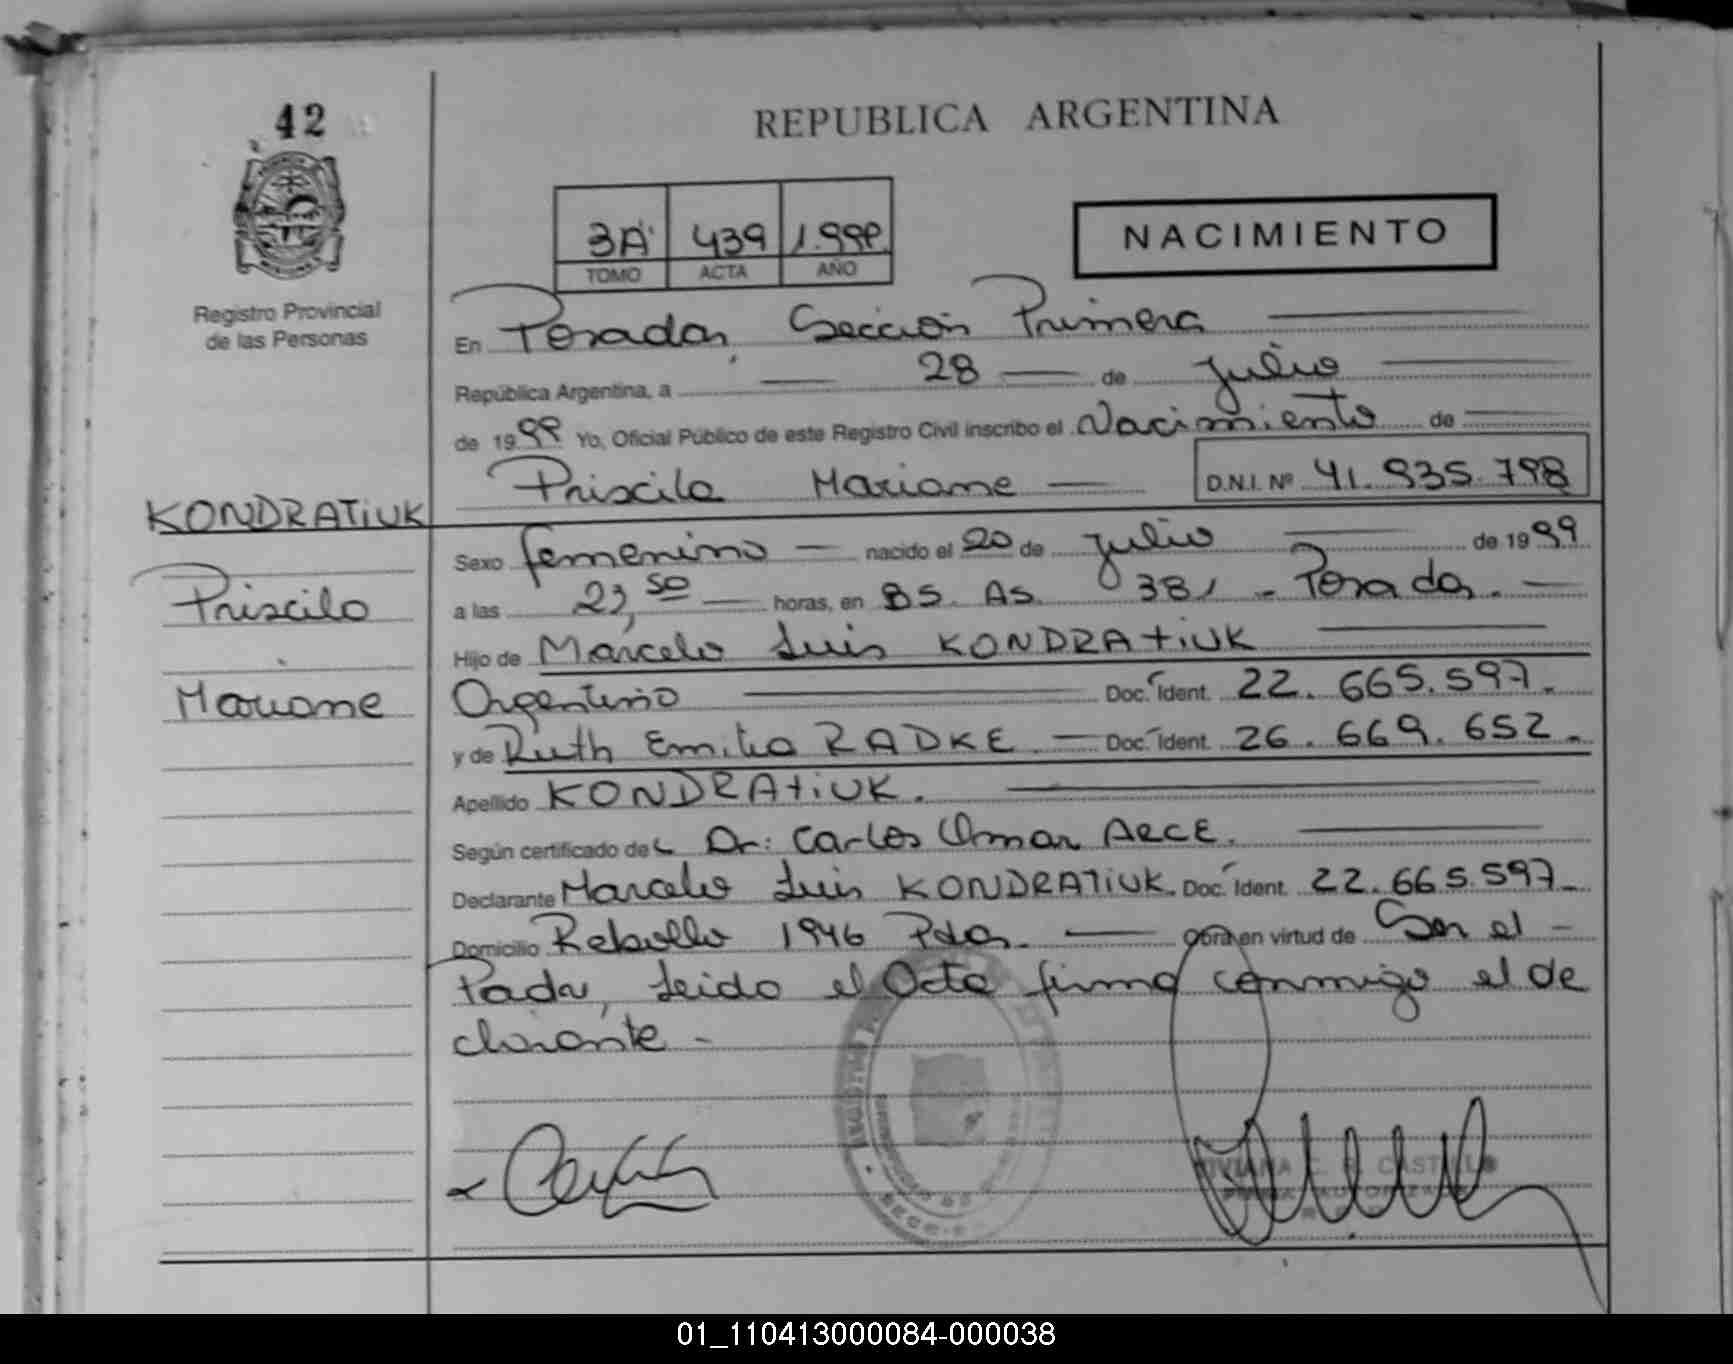 42
REPUBLICA ARGENTINA
3A 439 1.999
TOMO ACTA AÑO
NACIMIENTO
Registro Provincial
de las Personas
En Posadas, Seccion Primera
República Argentina, a 28 de Julio
de 1999 Yo, Oficial Público de este Registro Civil inscribo el Nacimiento de
Priscila Mariane D.N.I. Nº 41.935.798
KONDRATIUK
Priscila
Mariane
Sexo femenino nacido el 20 de Julio de 1999
a las 23,50 horas, en BS. AS. 381 - Posadas.
Hijo de Marcelo Luis KONDRATIUK
Argentino Doc. Ident. 22.665.597.
y de Ruth Emilia RADKE Doc. Ident. 26.669.652.
Apellido KONDRATIUK.
Según certificado del Dr: Carlos Omar ARCE.
Declarante Marcelo Luis KONDRATIUK. Doc. Ident. 22.665.597
Domicilio Rebollo 1946 Pdas. obra en virtud de Ser el
Padre, Leido el Acta firma conmigo el de
clarante -
VIVIANA C. R. CASTILLO
01_110413000084-000038